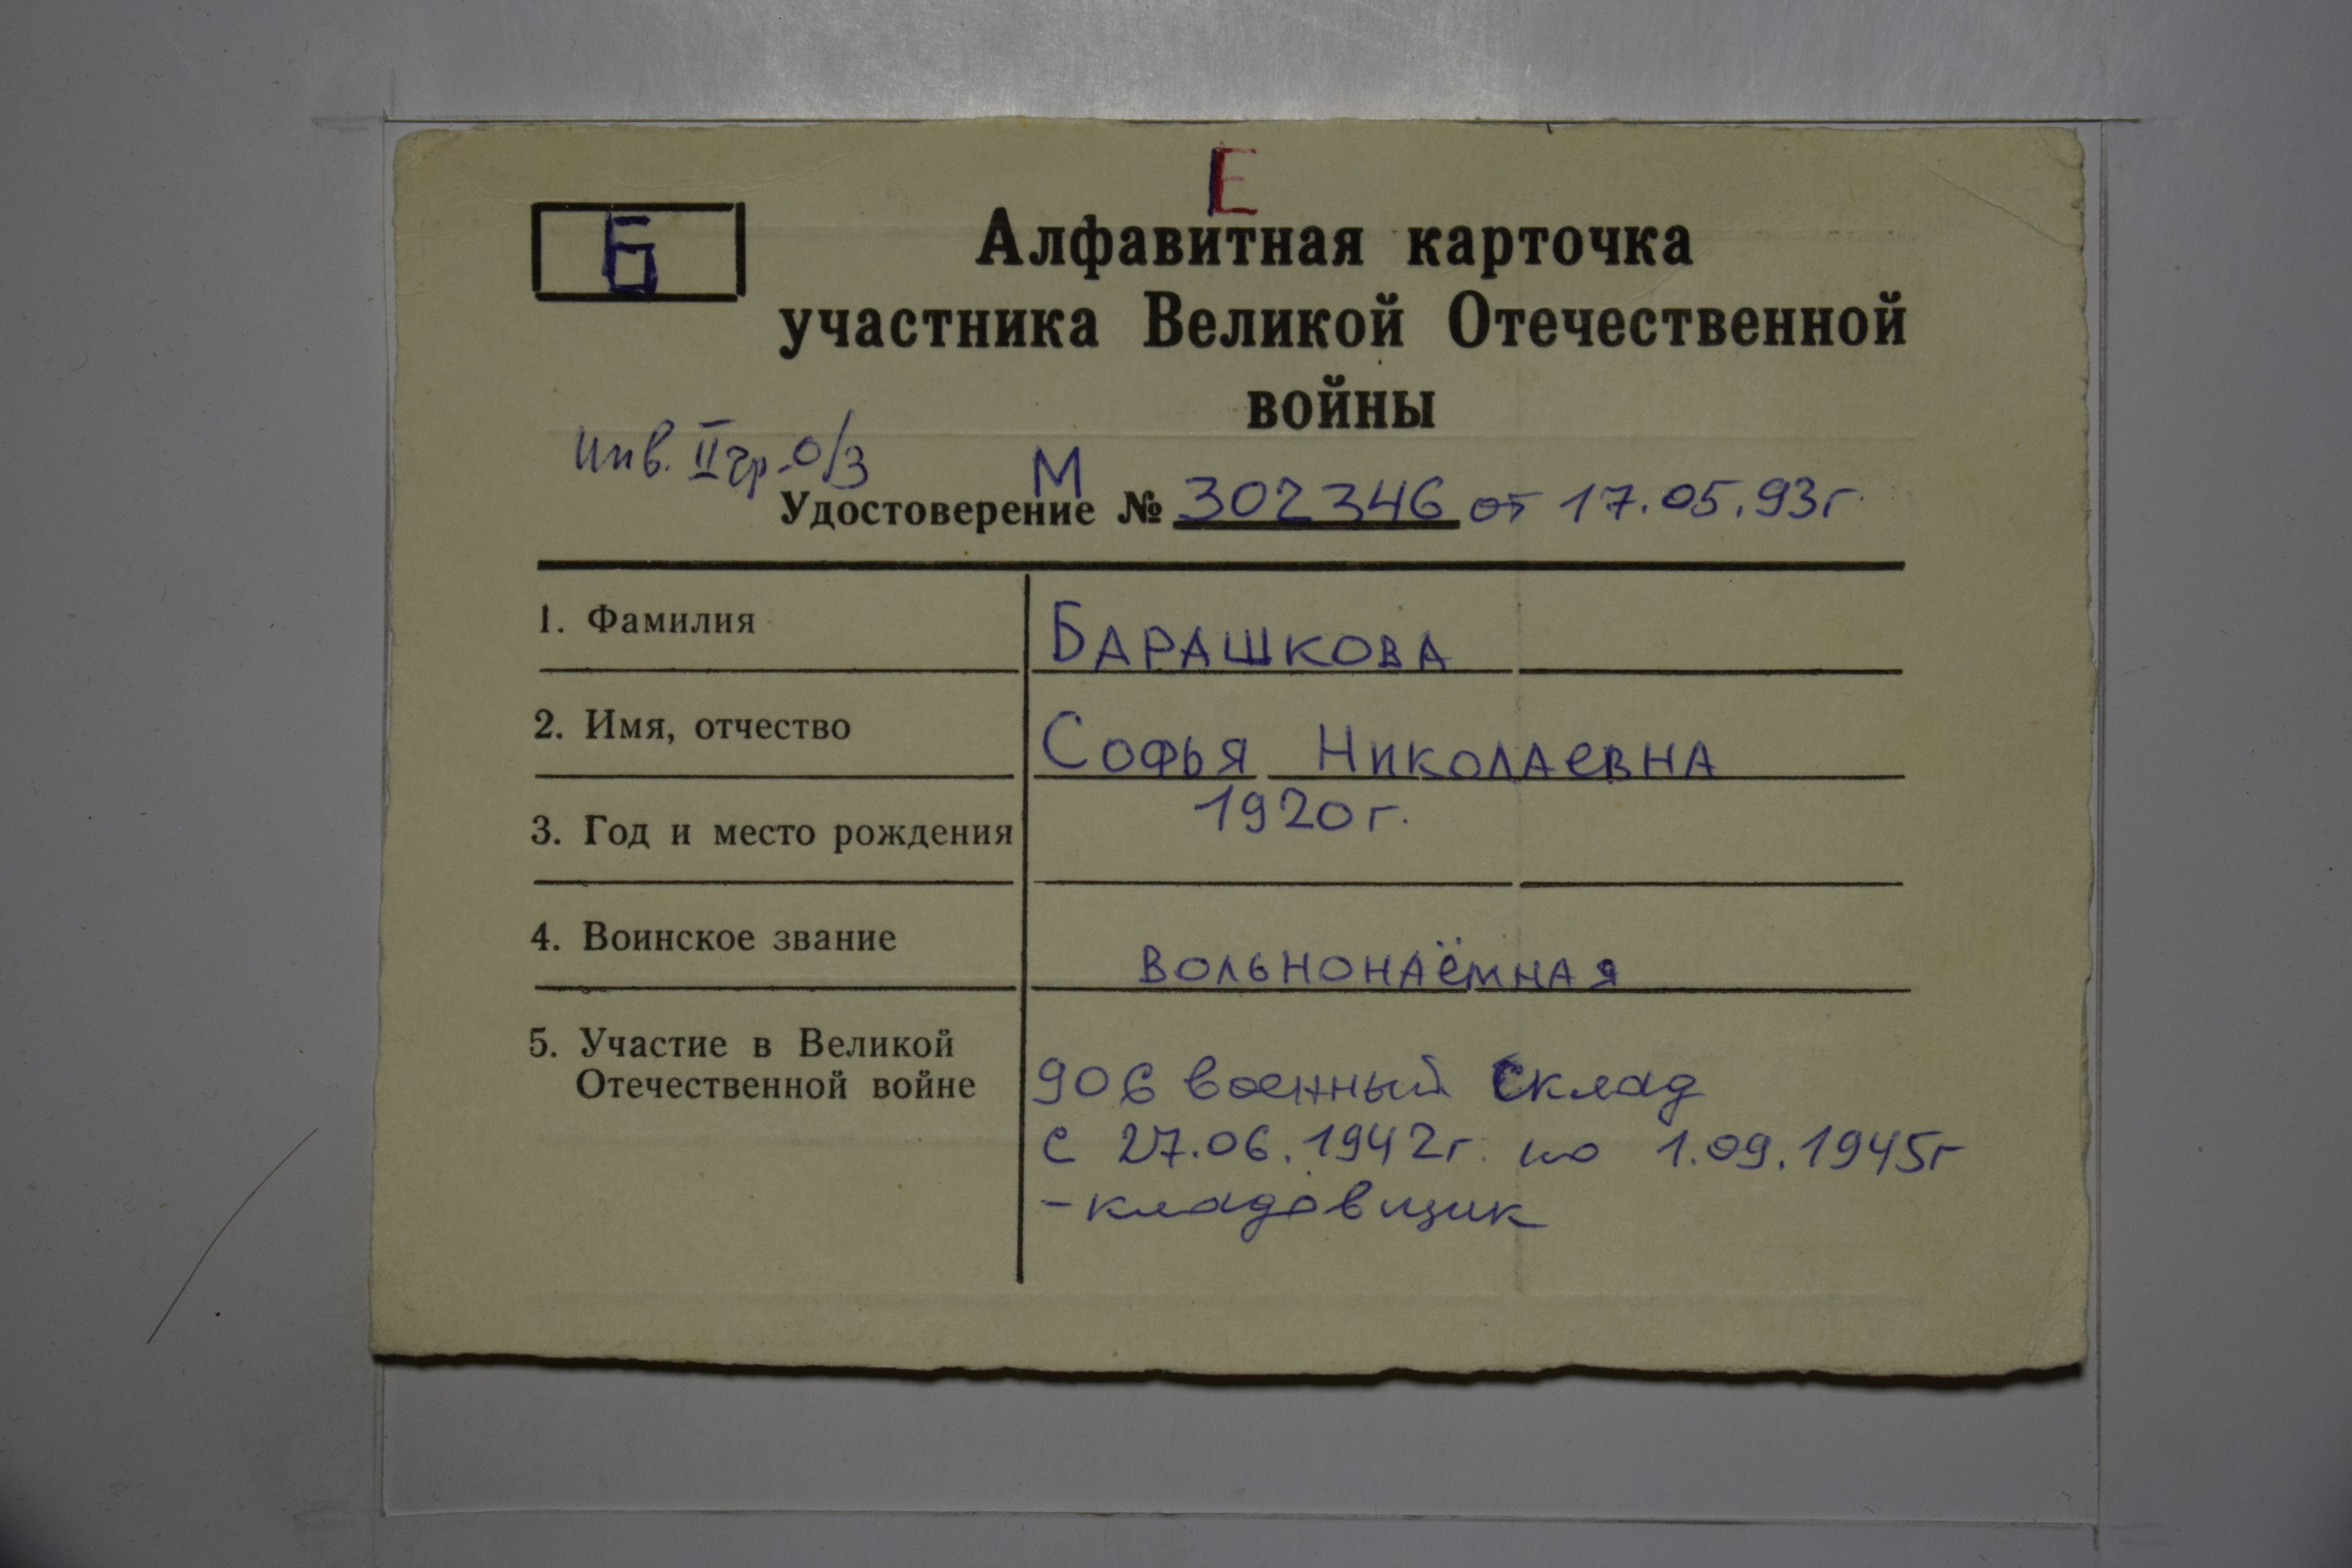 Е
Б
Алфавитная карточка
участника Великой Отечественной
войны
инв. II гр. о/з
М
Удостоверение № 302346 от 17.05.93г.
1. Фамилия БАРАШКОВА
2. Имя, отчество СОФЬЯ НИКОЛАЕВНА
3. Год и место рождения 1920 г.
4. Воинское звание ВОЛЬНОНАЁМНАЯ
5. Участие в Великой
Отечественной войне
906 военный склад
с 27.06.1942г. по 1.09.1945г
- кладовщик